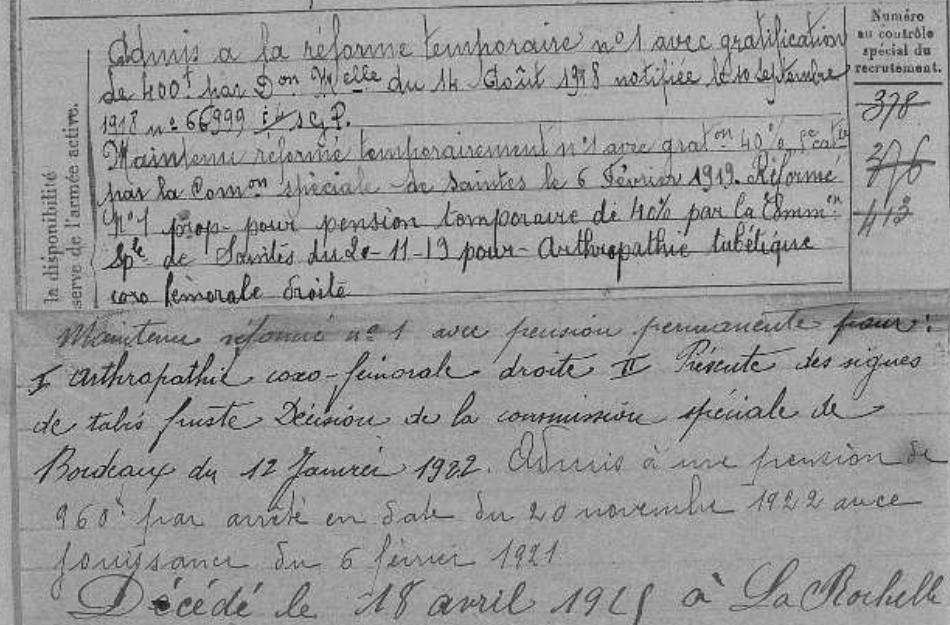 Admis a la réforme temporaire n°1 avec gratification
de 400f par Don Melle du 14 Août 1918 notifiée le 10 septembre
1918 n° 66999 s.g.P.
Maintenu réformé temporairement n°1 avec graton 40%
par la Comon spéciale de Saintes le 6 Février 1919. Réformé
N°1 prop. pour pension temporaire de 40% par la
Sple de Saintes du 20-11-19 pour Arthropathie tabétique
coxo fémorale droite
Maintenu réformé n°1 avec pension permanente pour :
I Arthropathie coxo-fémorale droite II Présente des signes
de tabès fruste Décision de la commission spéciale de
Bordeaux du 12 Janvier 1922. Admis à une pension de
960f par arrêté en date du 20 novembre 1922 avec
jouissance du 6 février 1921
Décédé le 18 avril à La Rochelle
la disponibilité
serve de l'armée active.
Numéro
au contrôle
spécial du
recrutement.
378
413